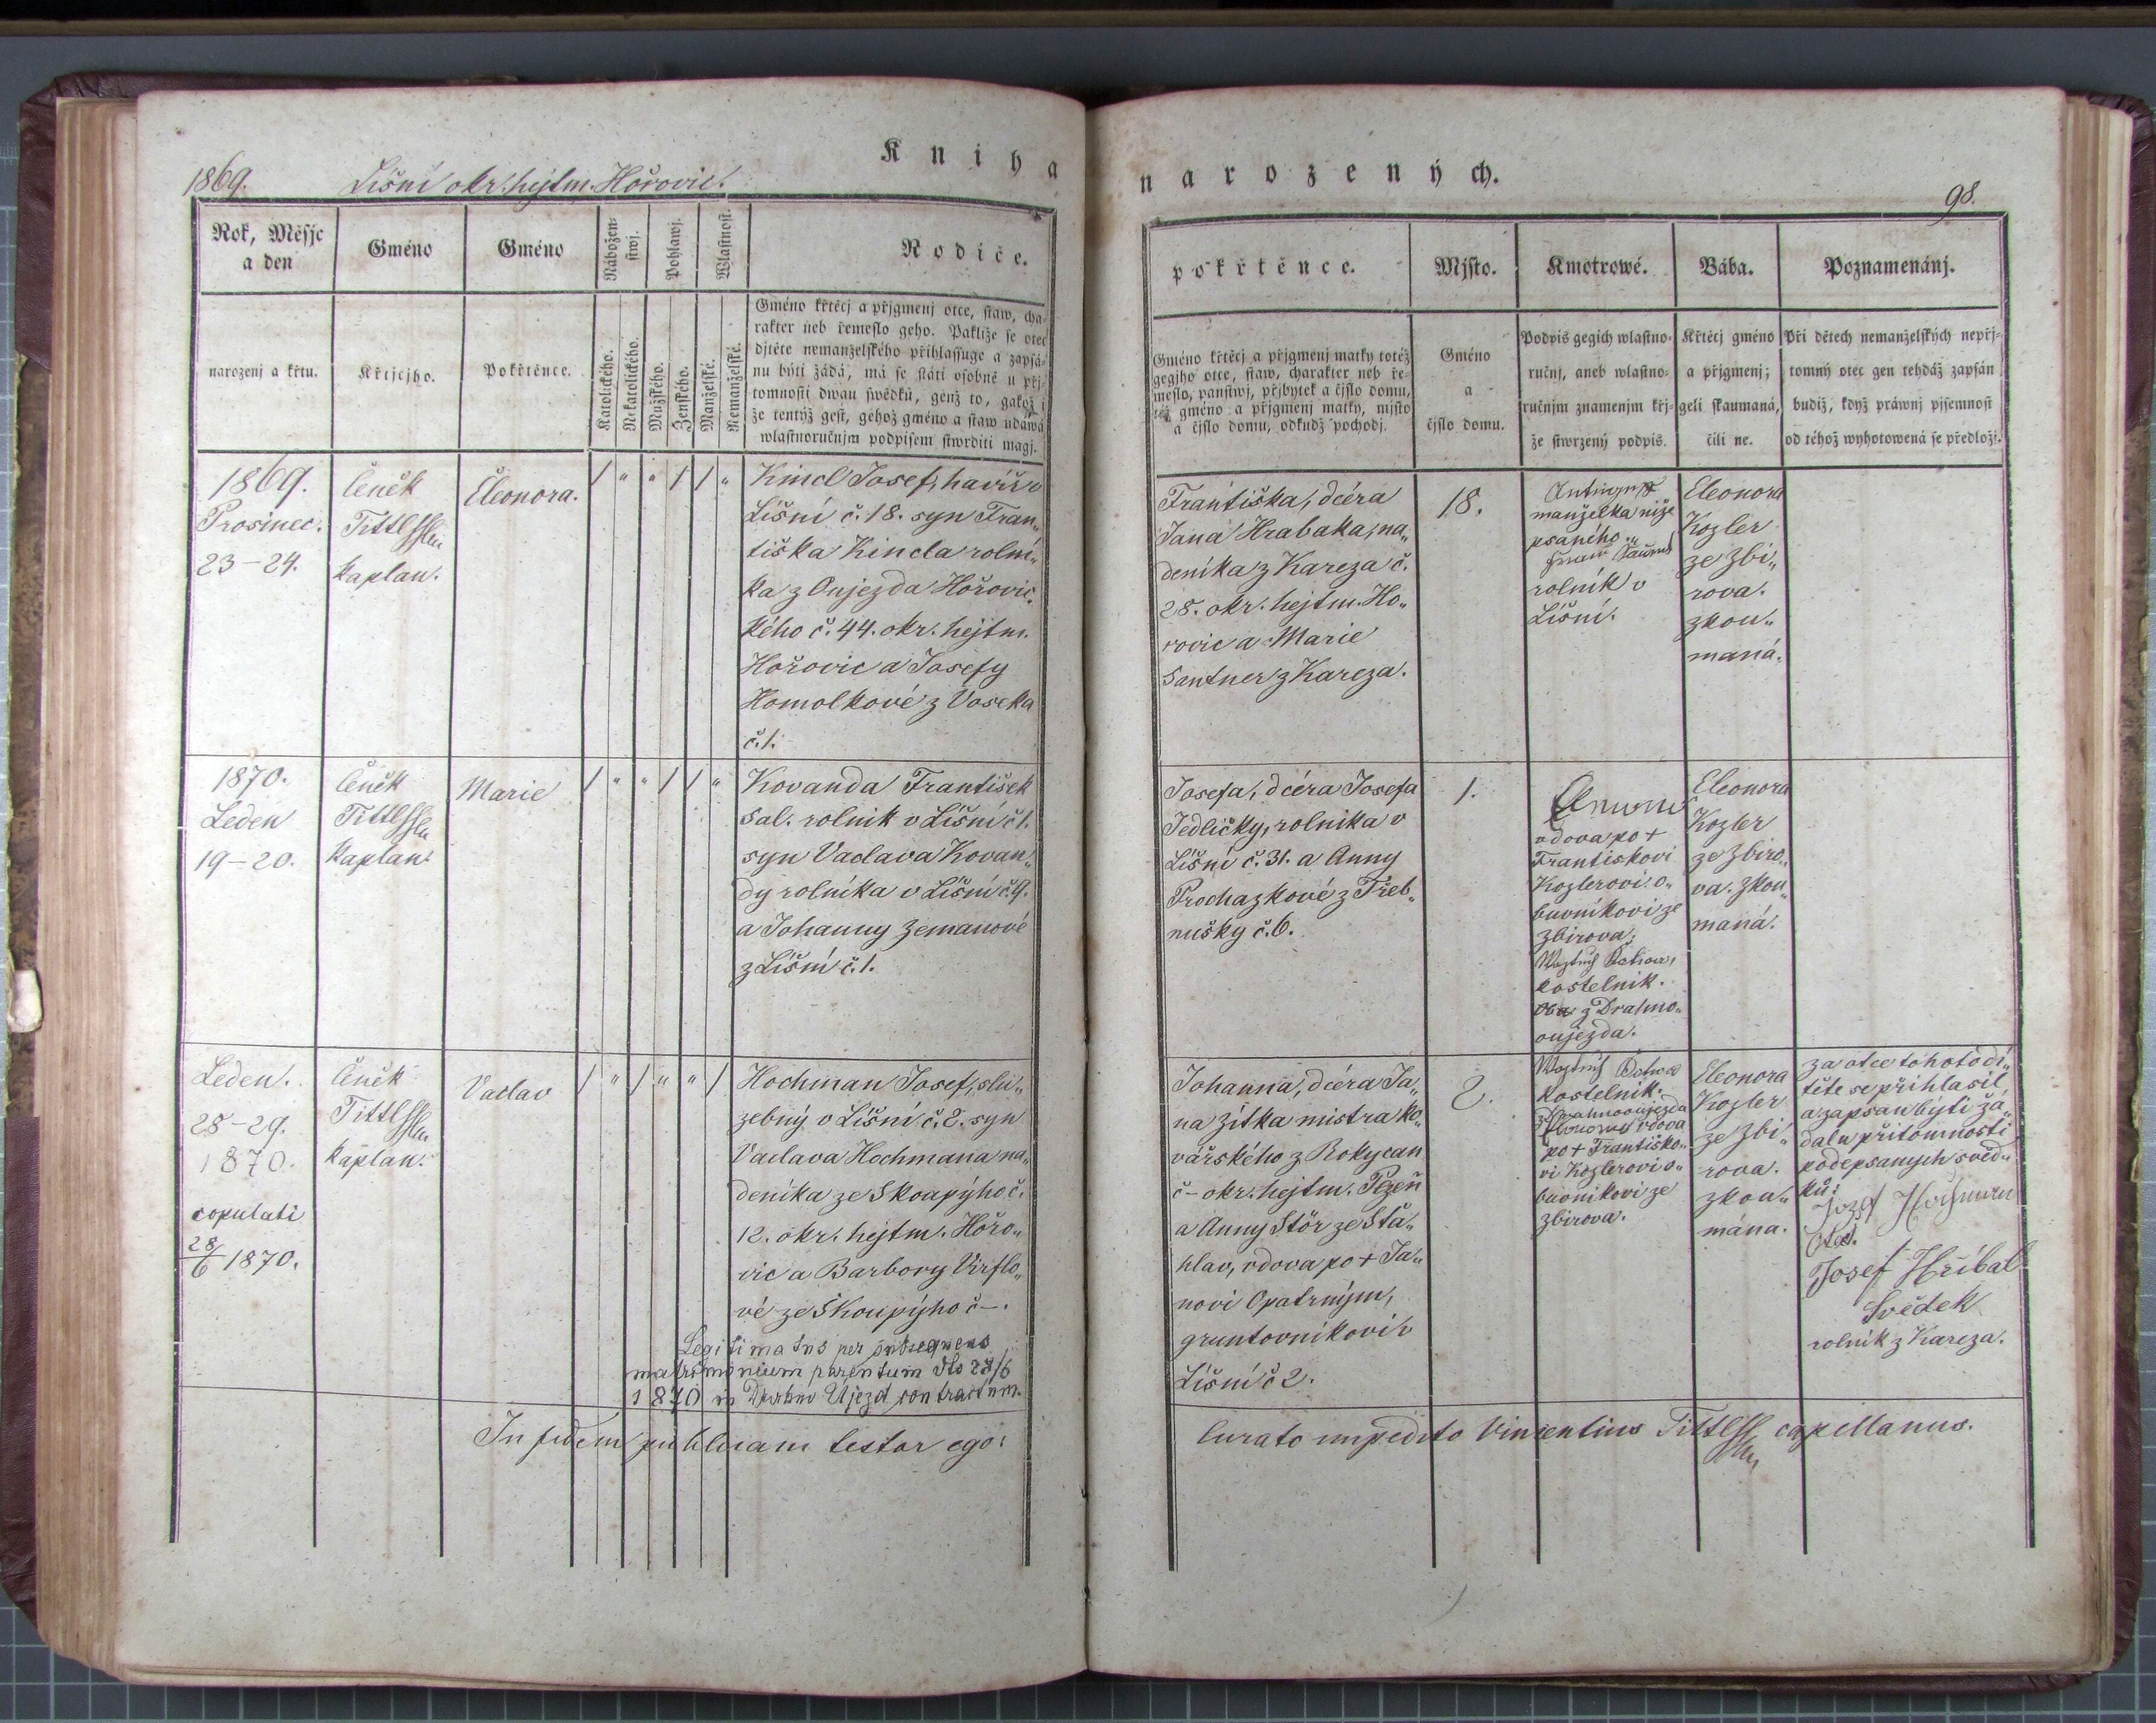 Kniha
narozených.
1869. Líšní okr. hejtm. Hořovic.
98.
Rok, Měsýc
a den
Gméno
Gméno
Nábožen-
stwj.
Pohlawj.
Wlastnost.
Rodiče.
narozenj a křtu.
Křtjcýho.
Pokřtěnce.
Katolického.
Nekatolického.
Mužského.
Ženského.
Manželské.
Nemanželské.
Gméno křtěcj a přjgmenj otce, staw, cha-
rakter neb řemeslo geho. Pakliže se otec
djtěte nemanželského přihlassuge a zapsá-
nu býti žádá, má se státi osobně u přj-
tomnosti dwau swědků, genž to, gakož i
že tentýž gest, gehož gméno a staw udáwá
wlastnoručnjm podpisem stwrditi magj.
pokřtěnce.
Mjsto.
Kmotrowé.
Bába.
Poznamenánj.
Gméno křtěcj a přjgmenj matky totéž
gegjho otce, staw, charakter neb ře-
meslo, panstwj, přjbytek a čjslo domu,
též gméno a přjgmenj matky, mjsto
a čjslo domu, odkudž pochodj.
Gméno
a
čjslo domu.
Podpis gegich wlastno-
ručnj, aneb wlastno-
ručnjm znamenjm křj-
že stwrzený podpis.
Křtěcj gméno
a přjgmenj;
geli skaumaná,
čili ne.
Při dětech nemanželských nepřj-
tomný otec gen tehdáž zapsán
budiž, když práwnj pjsemnost
od téhož wyhotowená se předložj.
1869.
Prosinec.
23-24.
Čeněk
Tittl
kaplan.
Eleonora.
/ " " / / "
Kincl Josef, havíř v
Líšní č. 18. syn Fran„
tiška Kincla rolní„
ka z Oujezda Hořovic„
kého č. 44. okr. hejtm.
Hořovic a Josefy
Homolkové z Voseka
č. 1.
Františka, dcéra
Jana Hrabaka, na„
deníka z Kareza č.
28. okr. hejtm. Ho„
rovic a Marie
Santner z Kareza.
18.
manželka níže
psaného.
rolník v
Líšní.
Eleonora
Kozler
ze Zbi„
rova.
zkou„
maná.
1870.
Leden
19-20.
Čeněk
Tittl
kaplan.
Marie
/ " " / / "
Kovanda František
sal. rolník v Líšní č 1.
syn Vaclava Kovan„
dy rolníka v Líšní č. 9.
a Johanny Zemanové
z Líšní č. 1.
Josefa, dcéra Josefa
Jedličky, rolníka v
Líšní č. 31. a Anny
Prochazkové z Třeb„
nušky č. 6.
1.
vdova po +
Františkovi
Kozlerovi o„
buvníkovi ze
Zbirova;
kostelník.
z Drahno„
oujezda.
Eleonora
Kozler
ze Zbiro„
va. zkou„
maná.
Leden.
28-29.
1870.
copulati
28/6 1870.
Čeněk
Tittl
kaplan.
Vaclav
/ " / " " /
Hochman Josef, slu„
žebný v Líšní č. 2. syn
Vaclava Hochmana na„
deníka ze Skoupýho č.
12. okr. hejtm. Hořo„
vic a Barbory Virflo„
vé ze Skoupýho č –.
Legitimatus per subsequens
matrimonium parentum dto 28/6
1870 in Drahno Ujezd contractum.
Johanna, dcéra Ja„
na Zítka mistra ko„
vářského z Rokycan
č – okr. hejtm. Plzeň
a Anny Stör ze Šťa„
hlav, vdova po + Ja„
novi Opatrným,
gruntovníkovi v
Líšní č 2.
2.
kostelník.
Drahnooujezda
vdova
po + Františko„
vi Kozlerovi o„
buvníkovi ze
Zbirova.
Eleonora
Kozler
ze Zbi„
rova.
zkou„
mána.
za otce tohoto dí„
těte se přihlasil,
a zapsan býti žá„
dal u přítomnosti
podepsanych svěd„
ků:
Jozef Hochman
Otec.
Josef Hříbal
Svědek
rolník z Kareza.
In fidem publicam testor ego:
Curato impedito Vincentius Tittl capellanus.